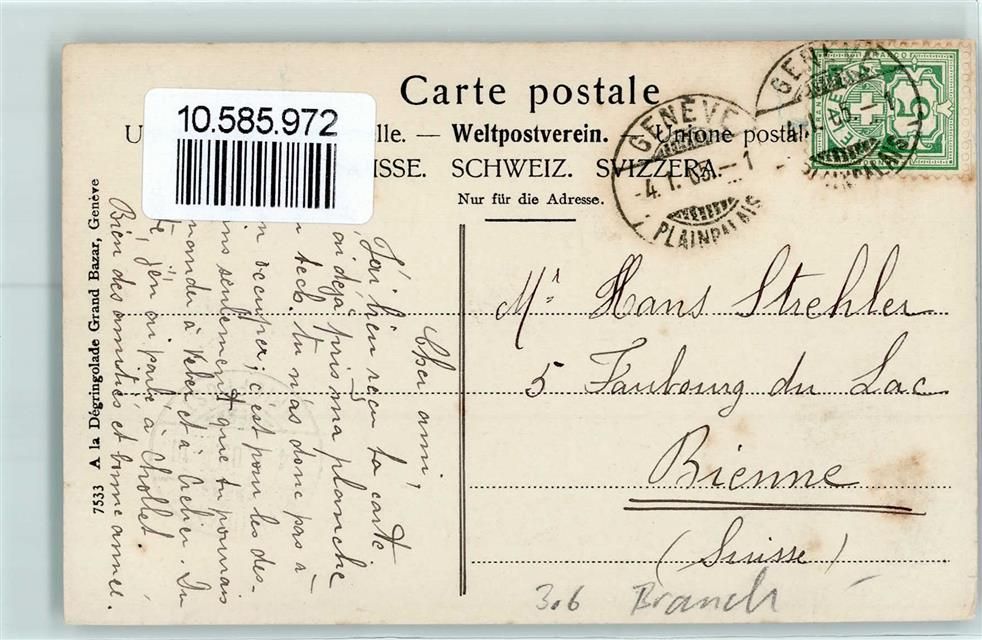 10.585.972
Carte postale
U elle. — Weltpostverein. — Unione postal
ISSE. SCHWEIZ. SVIZZERA.
Nur für die Adresse.
GENÈVE
-4.I.05.-1
PLAINPALAIS
GENÈVE
PLAINPALAIS
5
Mr Hans Strehler
5 Faubourg du Lac
Bienne
(Suisse)
3.6 Branch
7533 A la Dégringolade Grand Bazar, Genève
Cher ami,
J'ai bien reçu ta carte
ai déjà pris ma planche
tech. tu n'as donc pas à
n occuper; c'est pour les des-
ins seulement que tu pourrais
mander à Weber et à Becher. Du
te, j'en ai parlé à Chollet.
Bien des amitiés et bonne année.